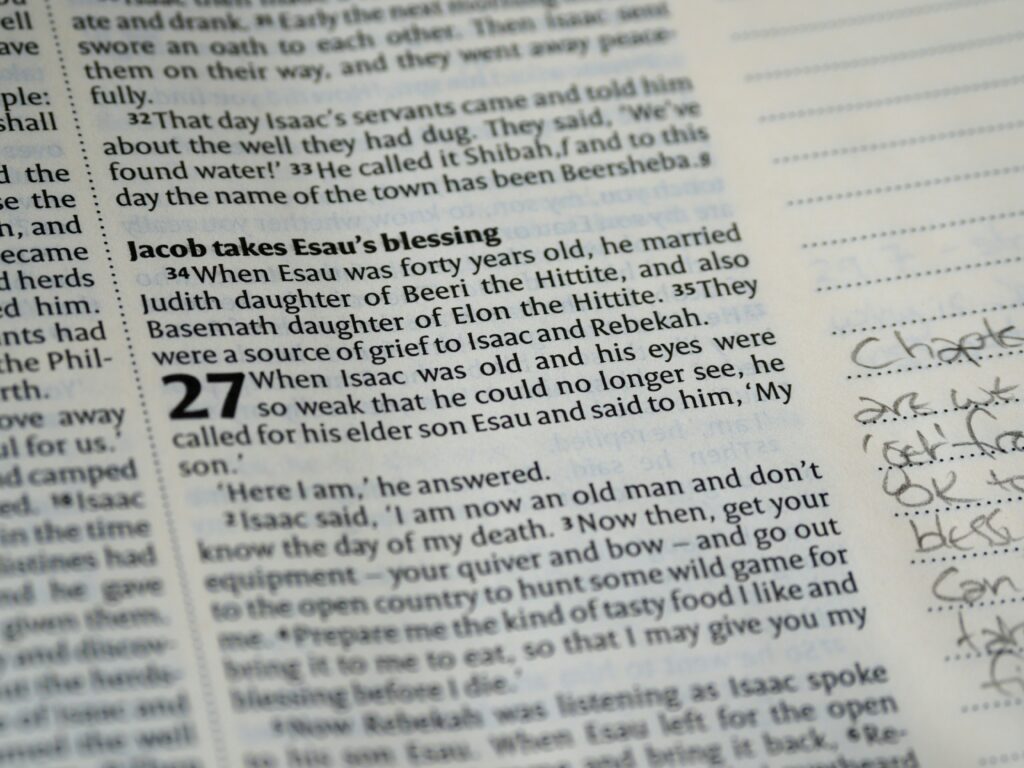 ell
ave
ple:
shall
d the
se the
n, and
ecame
d herds
ed him.
nts had
the Phil-
rth.
ove away
ul for us.'
nd camped
ed. 18 Isaac
in the time
listines had
nd he gave
given them.
and discov-
ut the herds-
of Isaac and
med the well
ate and drank. 31 Early the next morning
swore an oath to each other. Then Isaac sent
them on their way, and they went away peace-
fully.
32 That day Isaac's servants came and told him
about the well they had dug. They said, 'We've
found water!' 33 He called it Shibah,f and to this
day the name of the town has been Beersheba.g
Jacob takes Esau's blessing
34 When Esau was forty years old, he married
Judith daughter of Beeri the Hittite, and also
Basemath daughter of Elon the Hittite. 35 They
were a source of grief to Isaac and Rebekah.
27 When Isaac was old and his eyes were
so weak that he could no longer see, he
called for his elder son Esau and said to him, 'My
son.'
'Here I am,' he answered.
2 Isaac said, 'I am now an old man and don't
know the day of my death. 3 Now then, get your
equipment – your quiver and bow – and go out
to the open country to hunt some wild game for
me. 4 Prepare me the kind of tasty food I like and
bring it to me to eat, so that I may give you my
blessing before I die.'
5 Now Rebekah was listening as Isaac spoke
to his son Esau. When Esau left for the open
and bring it back, 6 Re-
Chapte
are
'get' fro
OK to
bless
Can